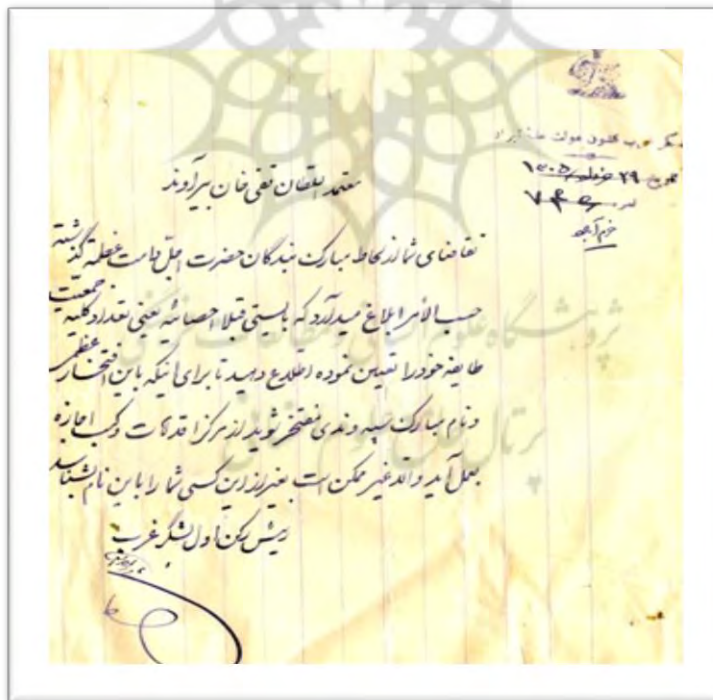 لشکر غرب قشون دولت علیه ایران
مورخه ۲۹ خرداد ۱۳۰۵
نمره ۷۴۵
خرم‌آباد
معتمد السلطان تقی خان بیرآنوند
تقاضای شما از لحاظ مبارک بندگان حضرت اجل دامت عظمته گذشته
حسب الامر ابلاغ میدارد که بایستی قبلا احصائیه یعنی تعداد کلیه جمعیت
طایفه خود را تعیین نموده اطلاع دهید تا برای اینکه باین افتخار عظمی
و نام مبارک سپه وندی مفتخر شوید از مرکز اقدامات و کسب اجازه
بعمل آید و الا غیر ممکن است بغیر از این کسی شما را باین نام بشناسد
رئیس رکن اول لشگر غرب
پژوهشگاه علوم انسانی و مطالعات فرهنگی
پرتال جامع علوم انسانی